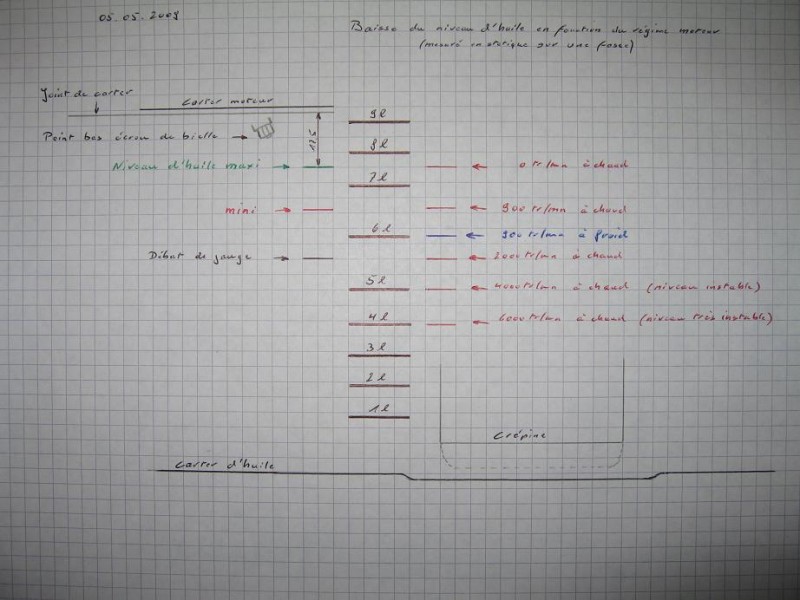 05.05.2009
Baisse du niveau d'huile en fonction du régime moteur
(mesuré en statique sur une fosse)
Joint de carter
Carter moteur
9l
Point bas écrou de bielle
17,5
8l
Niveau d'huile maxi
0 tr/mn à chaud
7l
mini
900 tr/mn à chaud
6l
900 tr/mn à froid
Début de jauge
2000 tr/mn à chaud
5l
4000 tr/mn à chaud (niveau instable)
4l
6000 tr/mn à chaud (niveau très instable)
3l
2l
1l
Crépine
Carter d'huile